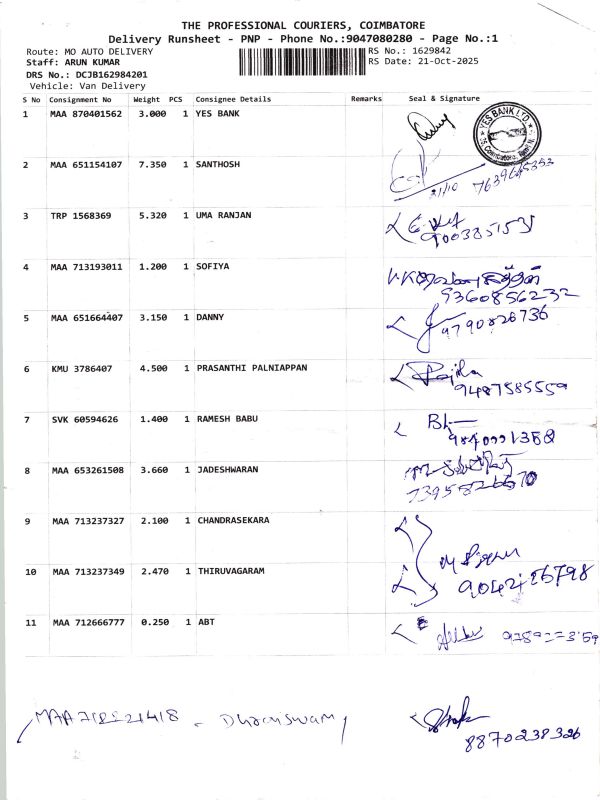 THE PROFESSIONAL COURIERS, COIMBATORE
Delivery Runsheet - PNP - Phone No.:9047080280 - Page No.:1
Route: MO AUTO DELIVERY RS No.: 1629842
Staff: ARUN KUMAR RS Date: 21-Oct-2025
DRS No.: DCJB162984201
Vehicle: Van Delivery
S No Consignment No Weight PCS Consignee Details Remarks Seal & Signature
1 MAA 870401562 3.000 1 YES BANK YES BANK LTD.
2 MAA 651154107 7.350 1 SANTHOSH
21/10
3 TRP 1568369 5.320 1 UMA RANJAN
4 MAA 713193011 1.200 1 SOFIYA
9360856232
5 MAA 651664407 3.150 1 DANNY 9790828736
6 KMU 3786407 4.500 1 PRASANTHI PALNIAPPAN
9487585559
7 SVK 60594626 1.400 1 RAMESH BABU
8 MAA 653261508 3.660 1 JADESHWARAN
9 MAA 713237327 2.100 1 CHANDRASEKARA
10 MAA 713237349 2.470 1 THIRUVAGARAM
11 MAA 712666777 0.250 1 ABT
- Dharniswamy
8870238326